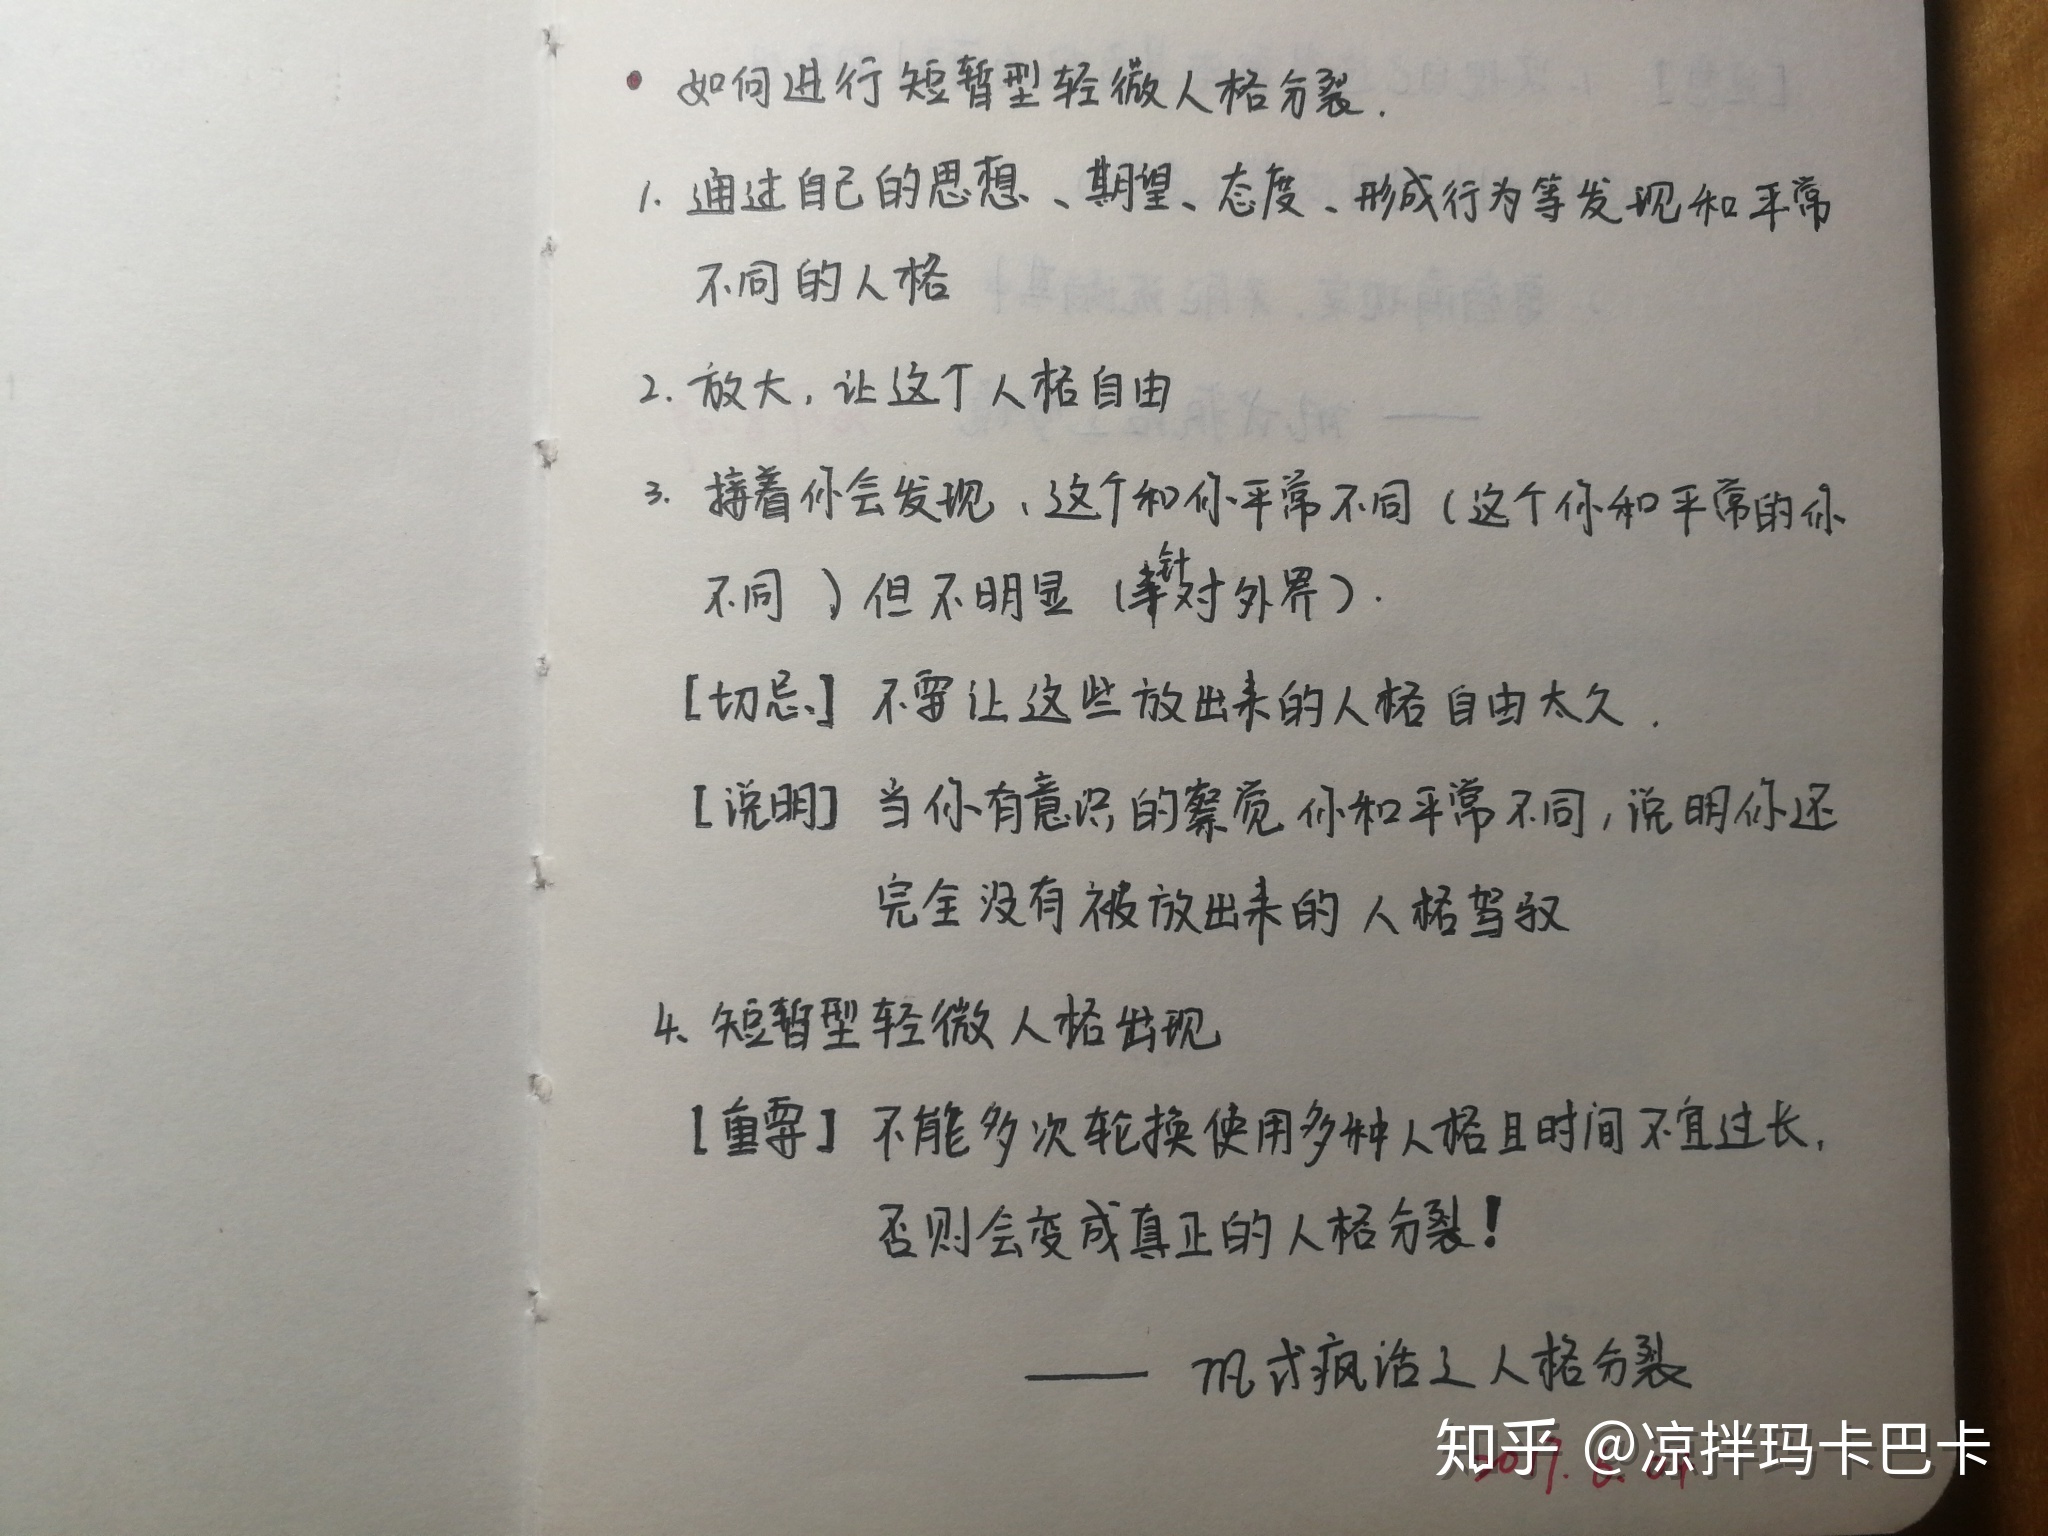 如何进行短暂型轻微人格分裂.
1. 通过自己的思想、期望、态度、形成行为等发现和平常
不同的人格
2. 放大，让这个人格自由
3. 接着你会发现，这个和你平常不同（这个你和平常的你
不同）但不明显（针对外界）.
[切忌] 不要让这些放出来的人格自由太久.
[说明] 当你有意识的察觉你和平常不同，说明你还
完全没有被放出来的人格驾驭
4. 短暂型轻微人格出现
[重要] 不能多次轮换使用多种人格且时间不宜过长，
否则会变成真正的人格分裂！
—— 式疯话之人格分裂
知乎 @凉拌玛卡巴卡
2017.